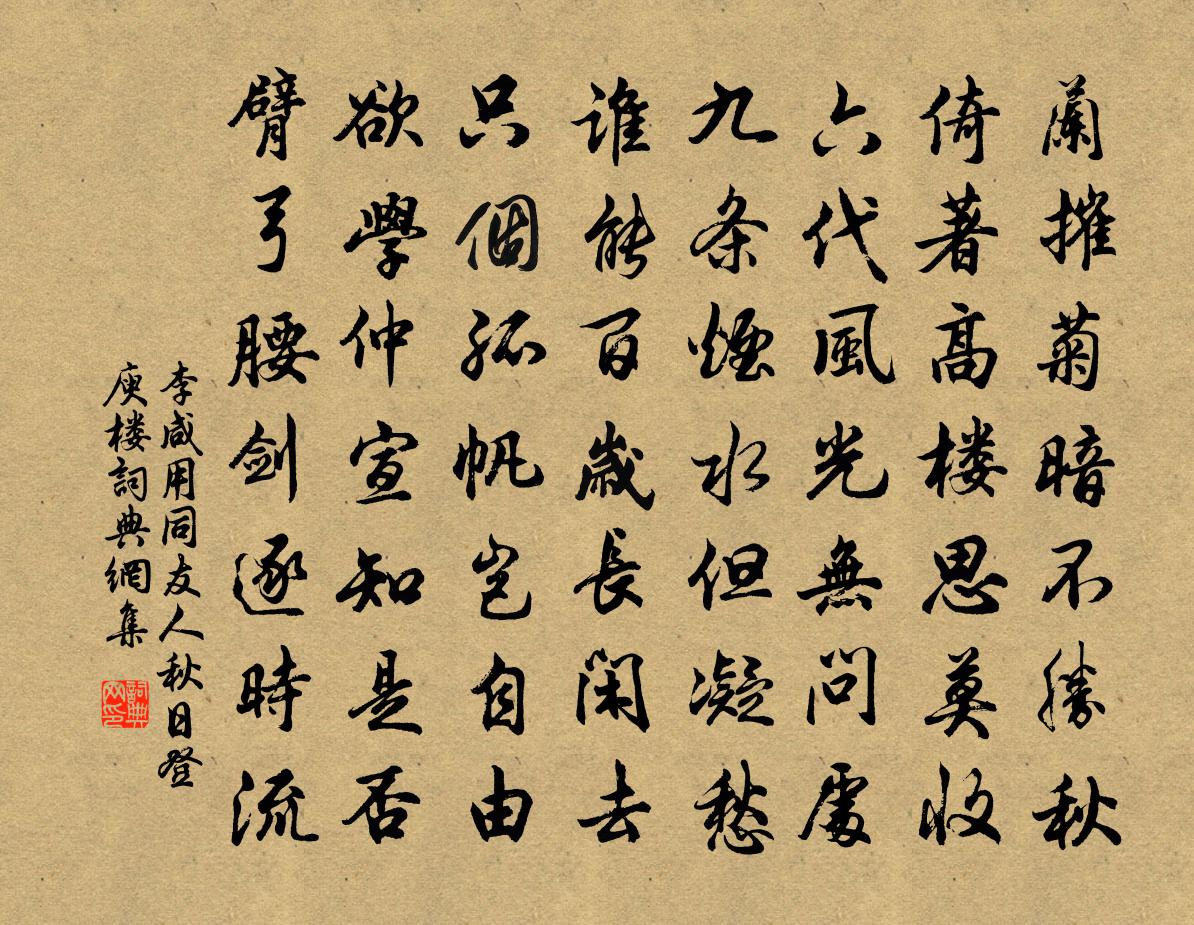 蘭摧菊暗不勝秋
倚著高楼思莫收
六代風光無問處
九条煙水但凝愁
誰能百歲長閑去
只個孤帆岂自由
欲學仲宣知是否
臂弓腰劍逐時流
李咸用同友人秋日登
庾楼詞典網集
詞典
网印